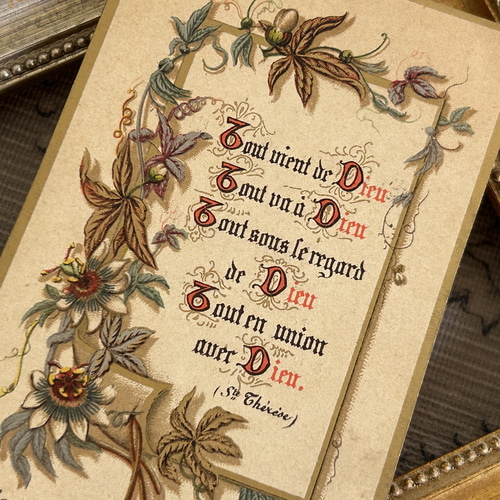 Tout vient de Dieu
Tout va à Dieu
Tout sous le regard
de Dieu
Tout en union
avec Dieu.
(Ste Thérèse)